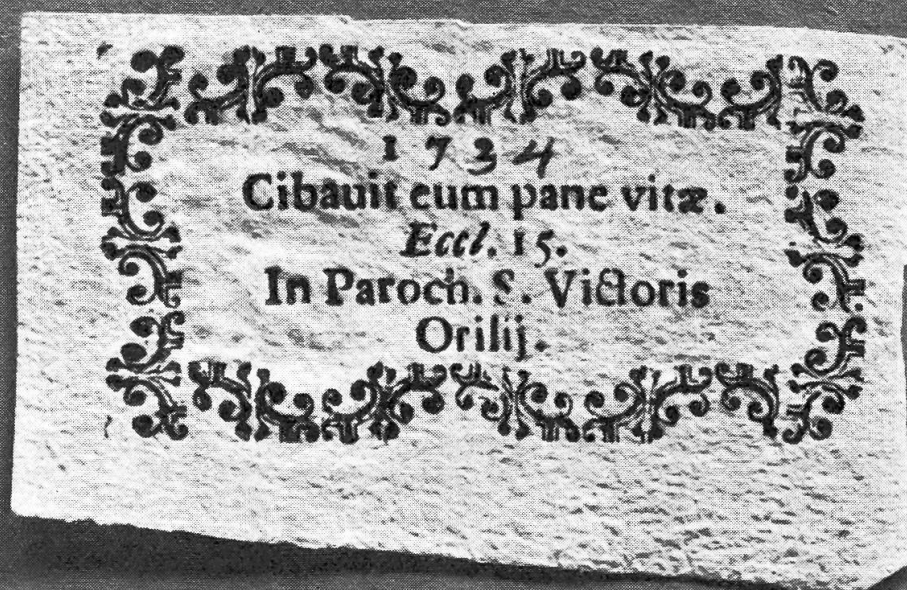 1734
Cibauit eum pane vitæ.
Eccl. 15.
In Paroch. S. Victoris
Orilij.